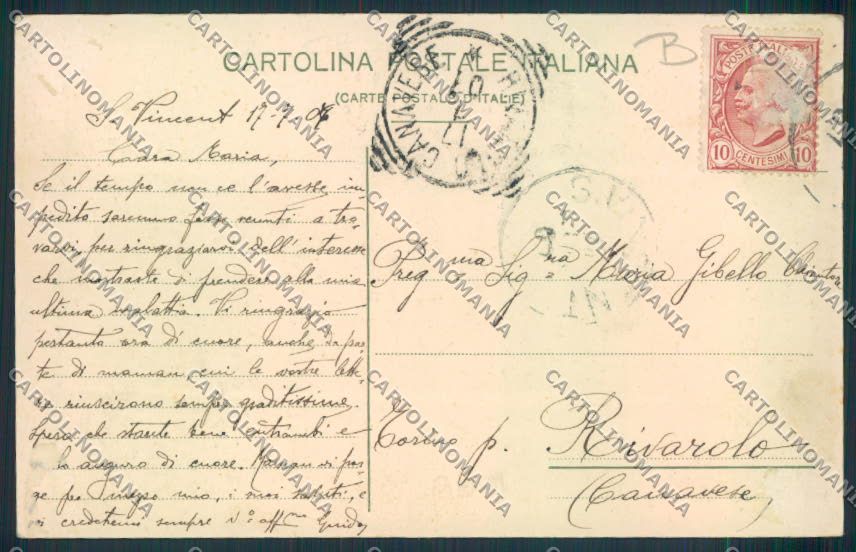 CARTOLINA POSTALE ITALIANA
(CARTE POSTALE D'ITALIE)
B
POSTE ITALIANE
10 CENTESIMI 10
CANAVESE
S. Vincent 17-7-07
Cara Maria,
Se il tempo non ce l'avesse im-
pedito saremmo forse venuti a tro-
varvi, per ringraziarvi dell'interesse
che mostraste di prendere alla mia
ultima malattia. Vi ringrazio
pertanto ora di cuore, anche da par-
te di maman cui le vostre lette-
re riuscirono sempre graditissime.
Spero che starete bene entrambi e
lo auguro di cuore. Maman vi por-
ge per mezzo mio, i suoi saluti, e
vi credetemi sempre V° aff.mo Guido
Preg.ma Sig.na Maria Gibello
Torino p. Rivarolo
(Canavese)
CARTOLINOMANIA